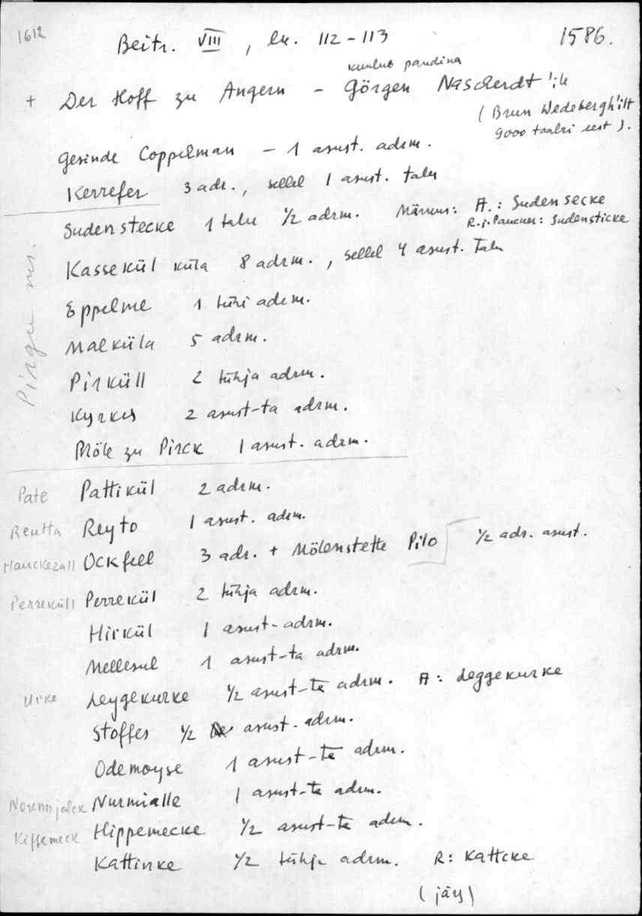 1612
Beitr. VIII, lk. 112-113
1586.
kuulub pandina
+ Der Hoff zu Angern - Görgen Nascherdt'ile
(Brun Wedebergh'ilt
9000 taalri eest).
Gesinde Coppelman - 1 asust. adrm.
Kerrefer 3 adr., sellel 1 asust. talu
Sudenstecke 1 talu 1/2 adrm. Märkus: A.: Sudensecke
R.j. Paucker: Sudensticke
Kassekül küla 8 adrm., sellel 4 asust. talu
Eppelme 1 tühi adrm.
Malküla 5 adrm.
Pirküll 2 tühja adrm.
Kyrkes 2 asust-ta adrm.
Möle zu Pirck 1 asust. adrm.
Pirgu
Pate Pattikül 2 adrm.
Reutta Reyto 1 asust. adrm.
Hauckezall Ockfell 3 adr. + Mölenstette Pilo 1/2 adr. asust.
Perreküll Perrekül 2 tühja adrm.
Hirkül 1 asust-adrm.
Mellesul 1 asust-ta adrm.
Urke Leygekurke 1/2 asust-ta adrm. A: Leggekurke
Stoffes 1/2 asust-adrm.
Odemoyse 1 asust-ta adrm.
Normjalck Nurmialle 1 asust-ta adrm.
Kiffemeck Hippemecke 1/2 asust-ta adrm.
Kattinke 1/2 tühja adrm. R: Kattcke
(järg)